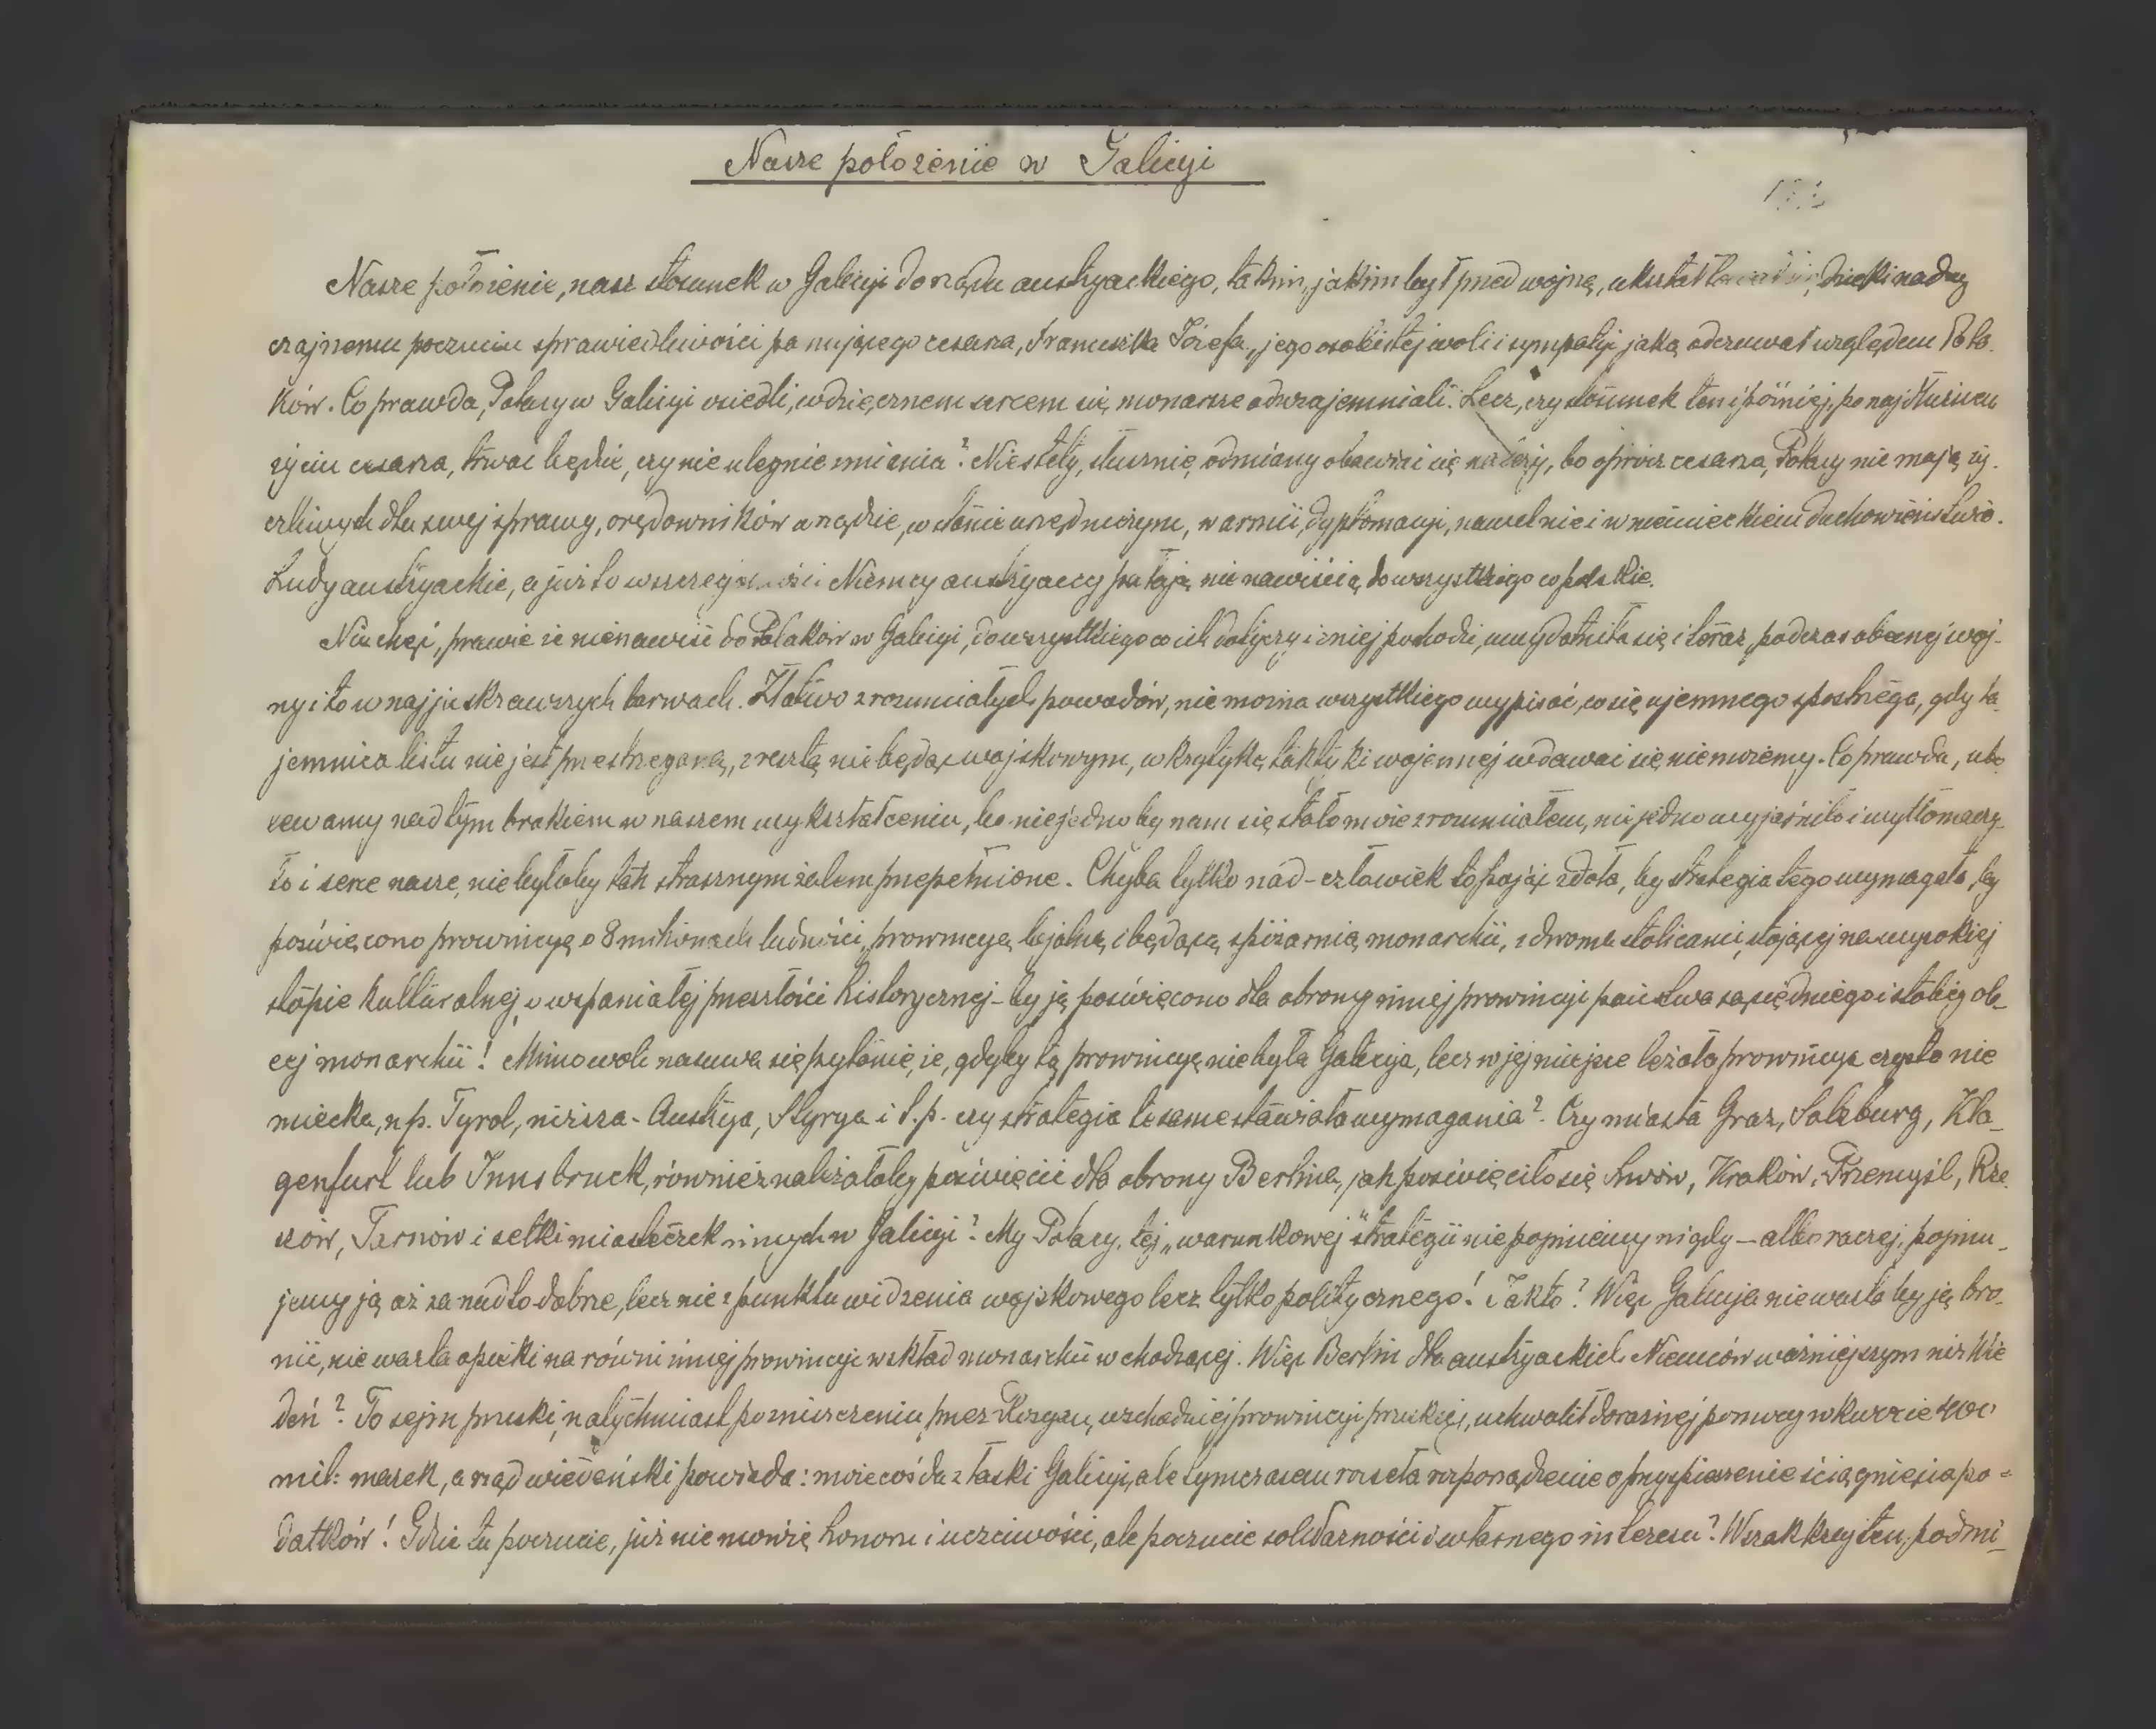 Nasze położenie w Galicyi
Nasze położenie, nasz stosunek w Galicyi do rządu austryackiego, takim, jakim był przed wojną, dzięki nadzwy
czajnemu poczuciu sprawiedliwości panującego cesarza, Franciszka Józefa, jego osobistej woli i sympatyi jaką odczuwał względem Pola-
ków. Co prawda, Polacy w Galicyi osiedli, wdzięcznem sercem się monarsze odwzajemniali. Lecz, czy stosunek ten i później, po najdłuższem
życiu cesarza, trwać będzie, czy nie ulegnie zmianie? Niestety, słusznie, odmiany obawiać się należy, bo oprócz cesarza, Polacy nie mają ży-
czliwych dla swej sprawy, orędowników w rządzie, w stanie urzędniczym, w armii, dyplomacyi, nawet nie i w niemieckiem duchowieństwie.
Ludy austryackie, a już to w szczególności Niemcy austryaccy pałają nienawiścią do wszystkiego co polskie.
Niechęć, prawie że nienawiść do Polaków w Galicyi, do wszystkiego co ich dotyczy i z niej pochodzi, uwydatniła się i teraz, podczas obecnej woj-
ny i to w najjaskrawszych barwach. Z łatwo zrozumiałych powodów, nie można wszystkiego wypisać, co się ujemnego spostrzega, gdy ta
jemnica listu nie jest przestrzeganą, zresztą nie będąc wojskowym, w krytykę taktyki wojennej wdawać się nie możemy. Co prawda, ubo
lewamy nad tym brakiem w naszem wykształceniu, bo niejedno by nam się stało może zrozumiałem, niejedno wyjaśniło i wytłomaczy-
ło i serce nasze, nie byłoby tak strasznym żalem przepełnione. Chyba tylko nad-człowiek to pojąć zdoła, by strategia tego wymagała, by
poświęcono prowincyę o 8 milionach ludności, prowincyę lojalną i będącą spiżarnią monarchii, z dwoma stolicami, stojącej na wysokiej
stopie kulturalnej, o wspaniałej przeszłości historycznej - by ją poświęcono dla obrony innej prowincyi państwa sąsiedniego i stolicy ob-
cej monarchii! Mimowoli nasuwa się pytanie, że, gdyby tą prowincyą nie była Galicyja, lecz w jej miejsce leżała prowincya czysto nie
miecka, np. Tyrol, niższa-Austrya, Styrya i t.p. czy strategia te same stawiała wymagania? Czy miasta Graz, Salzburg, Kla-
genfurt lub Innsbruck, również należałoby poświęcić dla obrony Berlina, jak poświęciło się Lwów, Kraków, Przemyśl, Rze
szów, Tarnów i setki miasteczek innych w Galicyi? My Polacy, tej „warunkowej" strategii nie pojmiemy nigdy — albo raczej, pojmu-
jemy ją aż za nadto dobrze, lecz nie z punktu widzenia wojskowego lecz tylko politycznego! Jakto? Więc Galicyja nie warta by ją bro-
nić, nie warta opieki na równi innej prowincyi w skład monarchii wchodzącej. Więc Berlin dla austryackich Niemców ważniejszym niż Wie
deń? To sejm pruski, natychmiast po zniszczeniu przez Rosyan, wschodniej prowincyi pruskiej, uchwalił doraźnej pomocy w kwocie 400
mil: marek, a rząd wiedeński powiada: może coś da z łaski Galicyi, ale tymczasem rozseła rozporządzenie o przyspieszenie ściągnięcia po-
datków! Gdzie tu poczucie, już nie mówię honoru i uczciwości, ale poczucie solidarności i własnego interesu? Wszak kraj ten, pod mi-